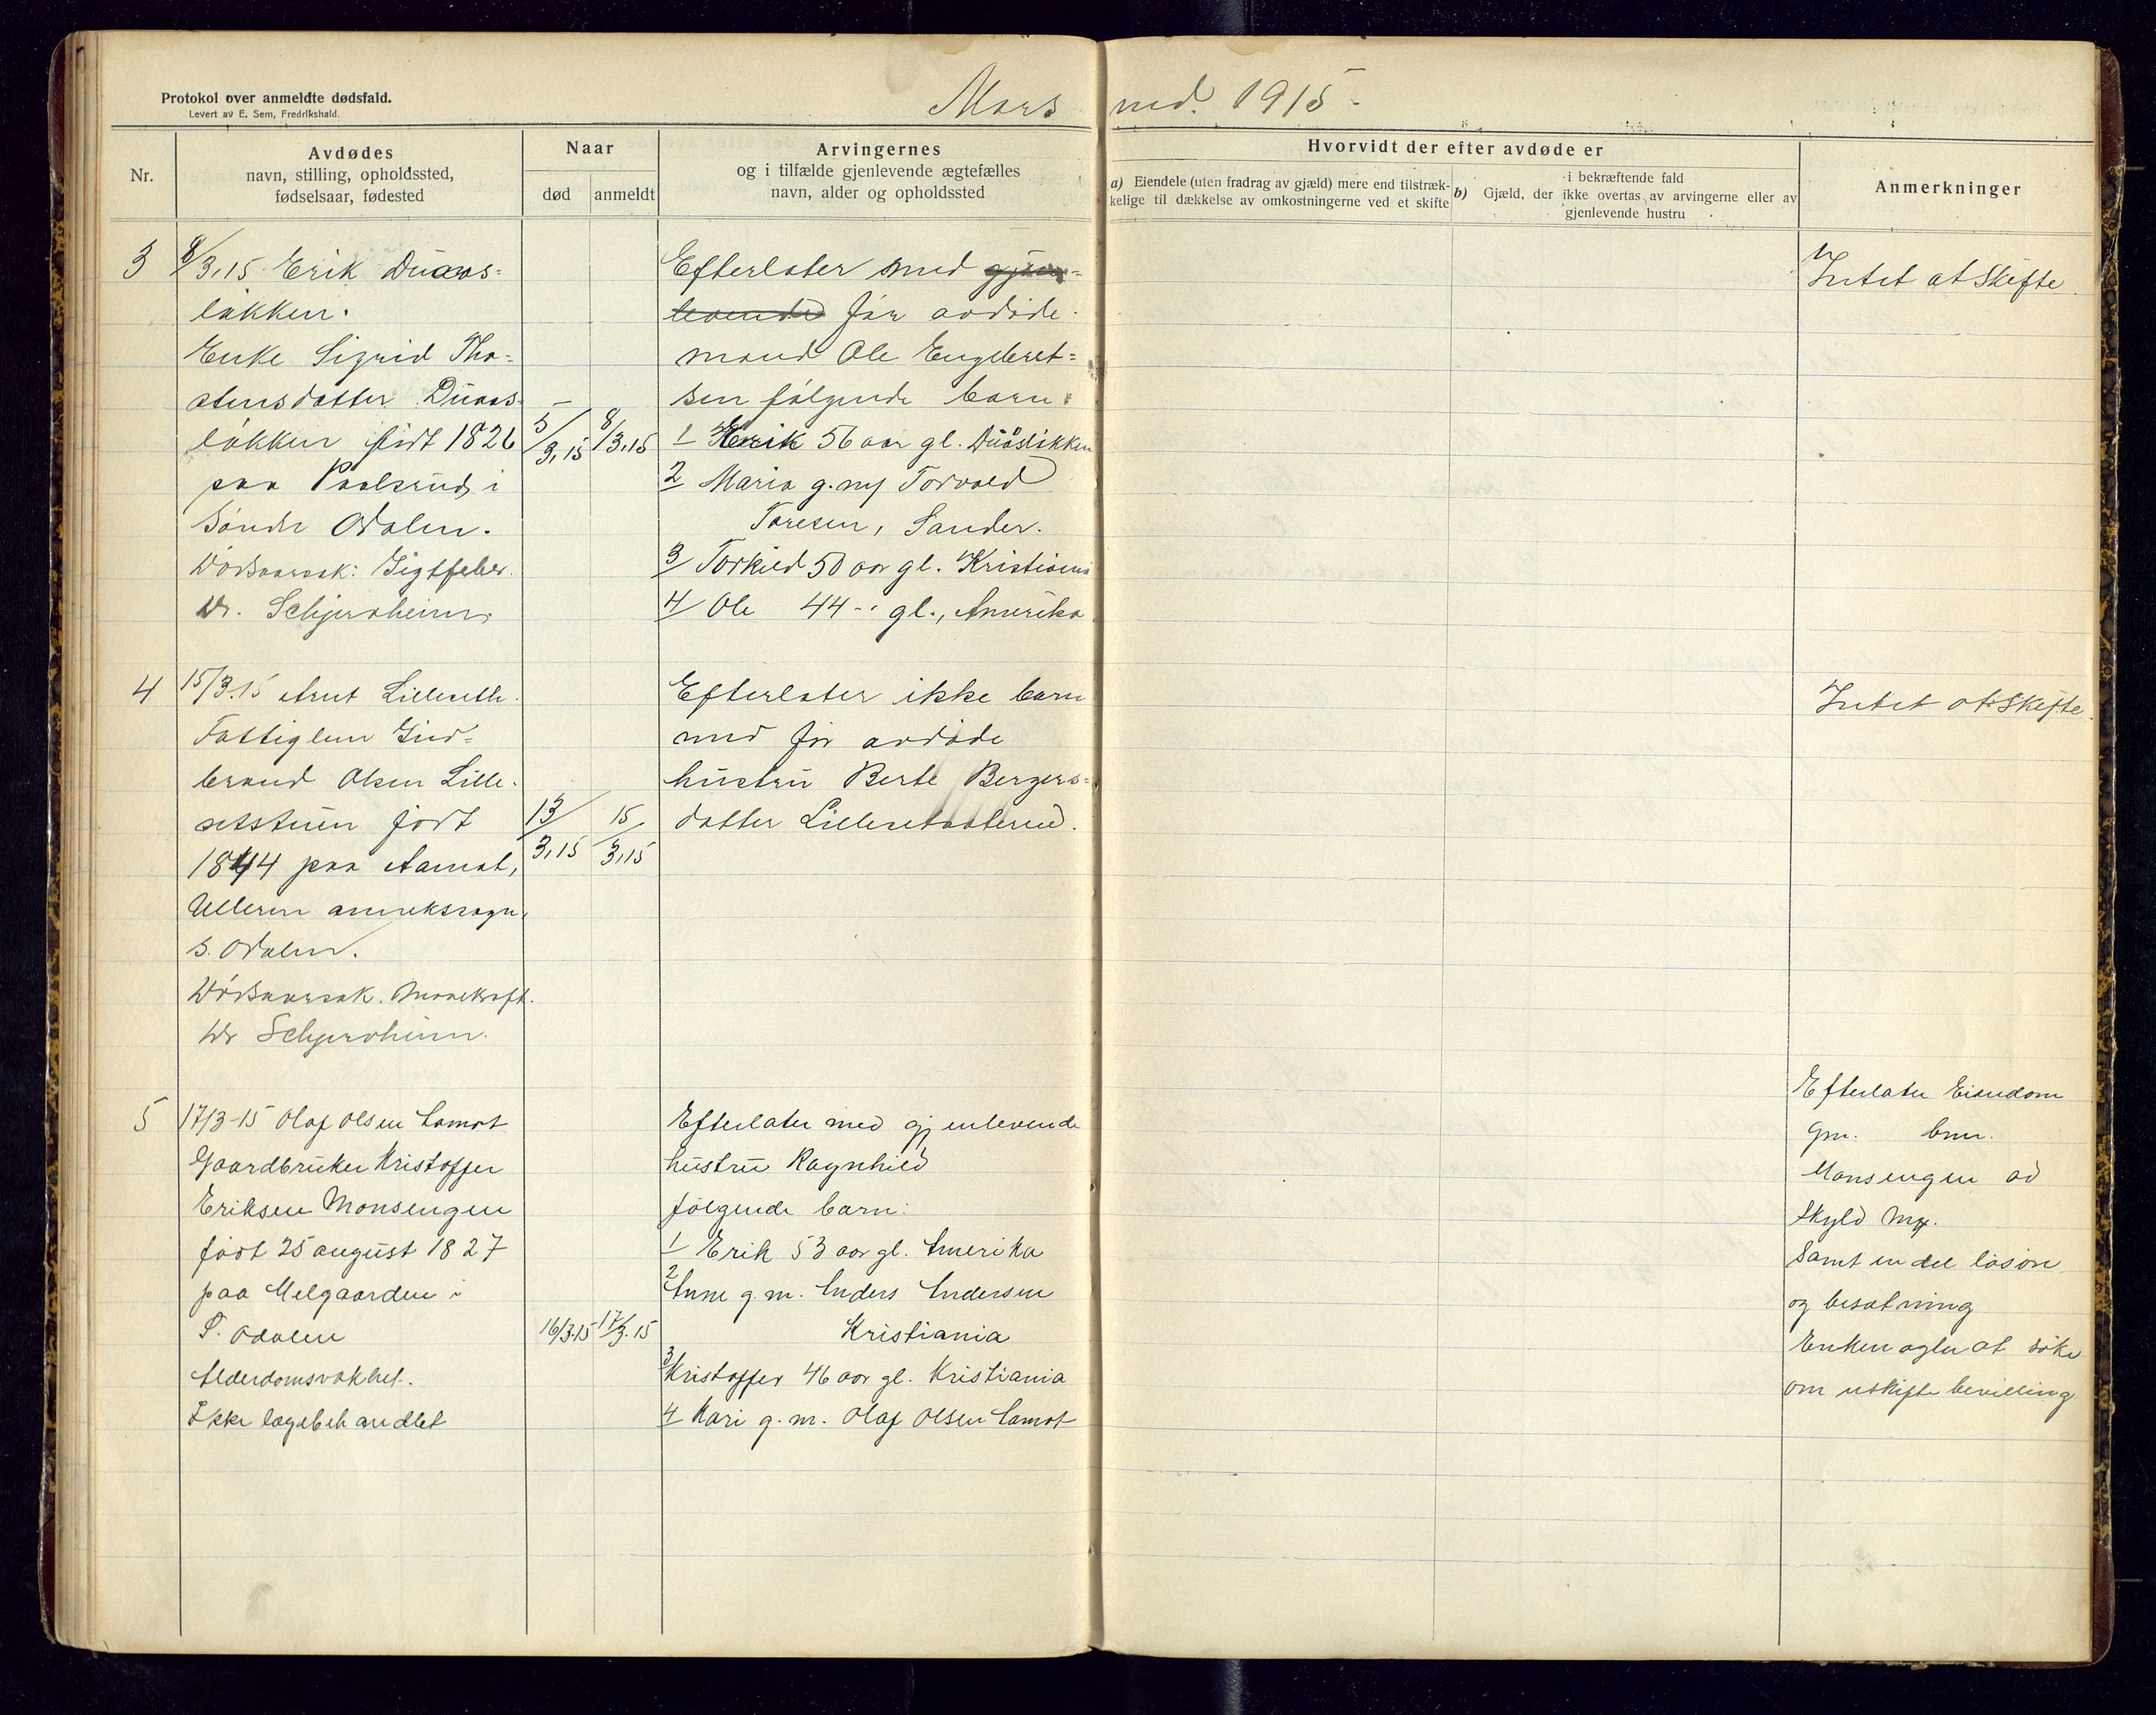 Protokol over anmeldte dødsfald.
Levert av E. Sem, Fredrikshald.
Mars md. 1915.
Nr.
Avdødes
navn, stilling, opholdssted,
fødselsaar, fødested
Naar
død
anmeldt
Arvingernes
og i tilfælde gjenlevende ægtefælles
navn, alder og opholdssted
Hvorvidt der efter avdøde er
a) Eiendele (uten fradrag av gjæld) mere end tilstræk-
kelige til dækkelse av omkostningerne ved et skifte
i bekræftende fald
b) Gjæld, der ikke overtas av arvingerne eller av
gjenlevende hustru
Anmerkninger
3
8/3.15 Erik Duaas=
løkken.
Enke Sigrid Tho=
stensdatter Duaas-
løkken født 1826
paa Paalsrud i
Søndr Odalen.
Dødsaarsak: Gigtfeber.
Dr. Schjervheim.
5/3.15
8/3.15
Efterlater med gjen=
levende før avdøde
mand Ole Engebret=
sen følgende barn:
1 Erik 56 aar gl. Duåsløkken
2 Maria g. m/ Torvald
Toresen, Sander.
3 Torkild 50 aar gl. Kristiania
4 Ole 44 -" gl., Amerika
Intet at Skifte.
4
15/3.15 Arnt Lilleseth.
Fattiglem Gud=
brand Olsen Lille-
setstuen født
1844 paa Aamot,
Ullern annekssogn,
S. Odalen.
Dødsaarsak.
Dr Schjervheim.
13/3.15
15/3.15
Efterlater ikke barn
med før avdøde
hustru Berte Bergers=
datter
Intet at Skifte.
5
17/3-15 Olaf Olsen Aamot
Gaardbruker Kristoffer
Eriksen Monsengen
født 25 august 1827
paa Melgaarden i
S. Odalen
Alderdomsvakhet.
Ikke lægebehandlet
16/3.15
17/3.15
Efterlater med gjenlevende
hustru Ragnhild
følgende barn:
1 Erik 53 aar gl. Amerika
2 Anne g. m. Anders Andersen
Kristiania
3 Kristoffer 46 aar gl. Kristiania
4 Kari g. m. Olaf Olsen Aamot
Efterlater Eiendom
Gnr. bnr.
Monsengen av
Skyld Mrk.
Samt en del løsøre
og besætning
Enken agter at søke
om uskifte bevilling